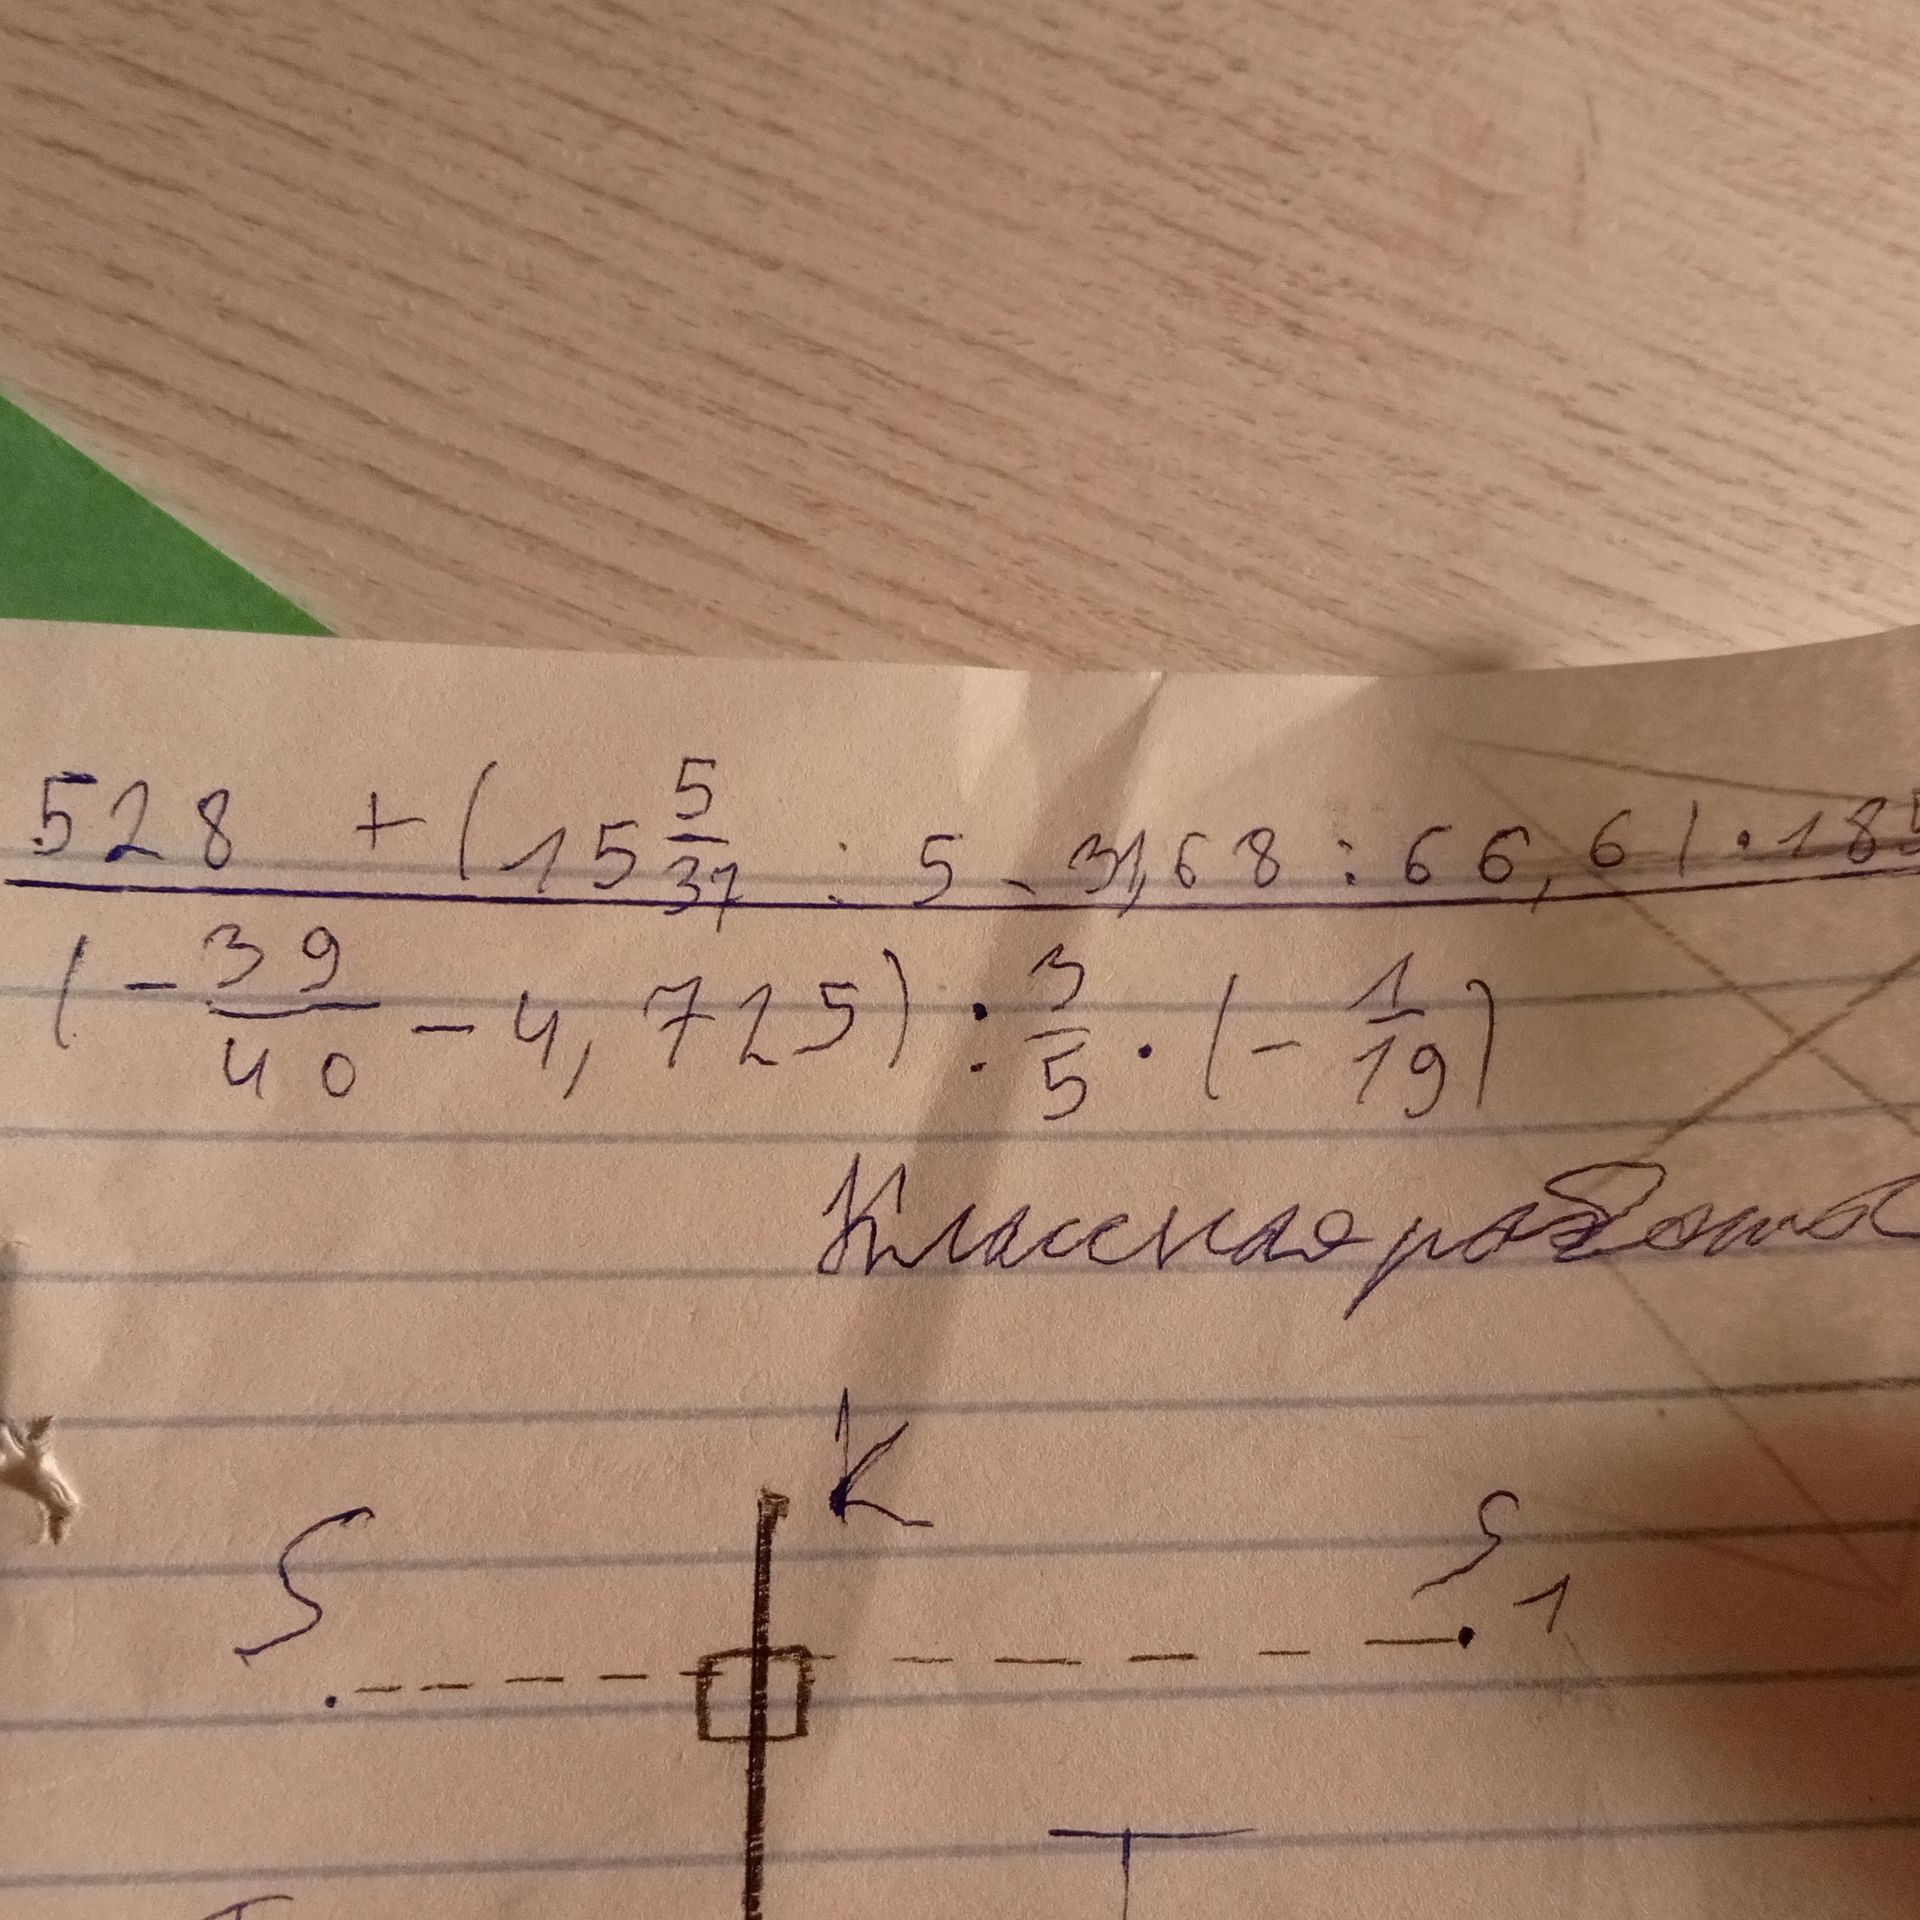 528 + (15 5/37 : 5 - 31,68 : 66,6) · 185
(- 39/40 - 4,725) : 3/5 · (- 1/19)
Классная работа
K
S S1
T